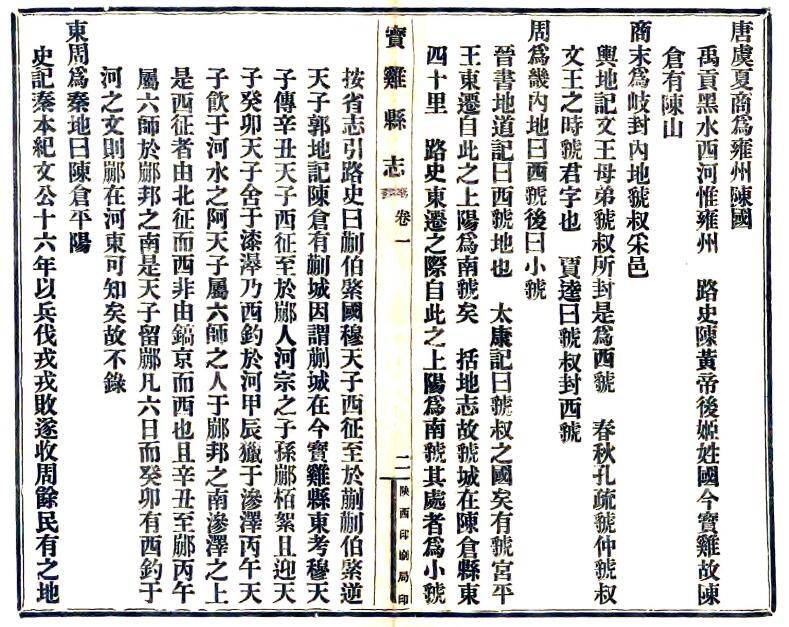 唐虞夏商爲雍州陳國
禹貢黑水西河惟雍州　路史陳黃帝後姬姓國今寶雞故陳
倉有陳山
商末爲岐封內地虢叔采邑
輿地記文王母弟虢叔所封是爲西虢　春秋孔疏虢仲虢叔
文王之時虢君字也　賈逵曰虢叔封西虢
周爲畿內地曰西虢後曰小虢
晉書地道記曰西虢地也　太康記曰虢叔之國矣有虢宮平
王東遷自此之上陽爲南虢矣　括地志故虢城在陳倉縣東
四十里　路史東遷之際自此之上陽爲南虢其處者爲小虢
寶雞縣志
卷一
二
陝西印刷局印
按省志引路史曰蒯伯綮國穆天子西征至於蒯蒯伯綮逆
天子郭地記陳倉有蒯城因謂蒯城在今寶雞縣東考穆天
子傳辛丑天子西征至於䣙人河宗之子孫䣙栢絮且迎天
子癸卯天子舍于漆澤乃西釣於河甲辰獵于滲澤丙午天
子飮于河水之阿天子屬六師之人于䣙邦之南滲澤之上
是西征者由北征而西非由鎬京而西也且辛丑至䣙丙午
屬六師於䣙邦之南是天子留䣙凡六日而癸卯有西釣于
河之文則䣙在河東可知矣故不錄
東周爲秦地曰陳倉平陽
史記秦本紀文公十六年以兵伐戎戎敗遂收周餘民有之地